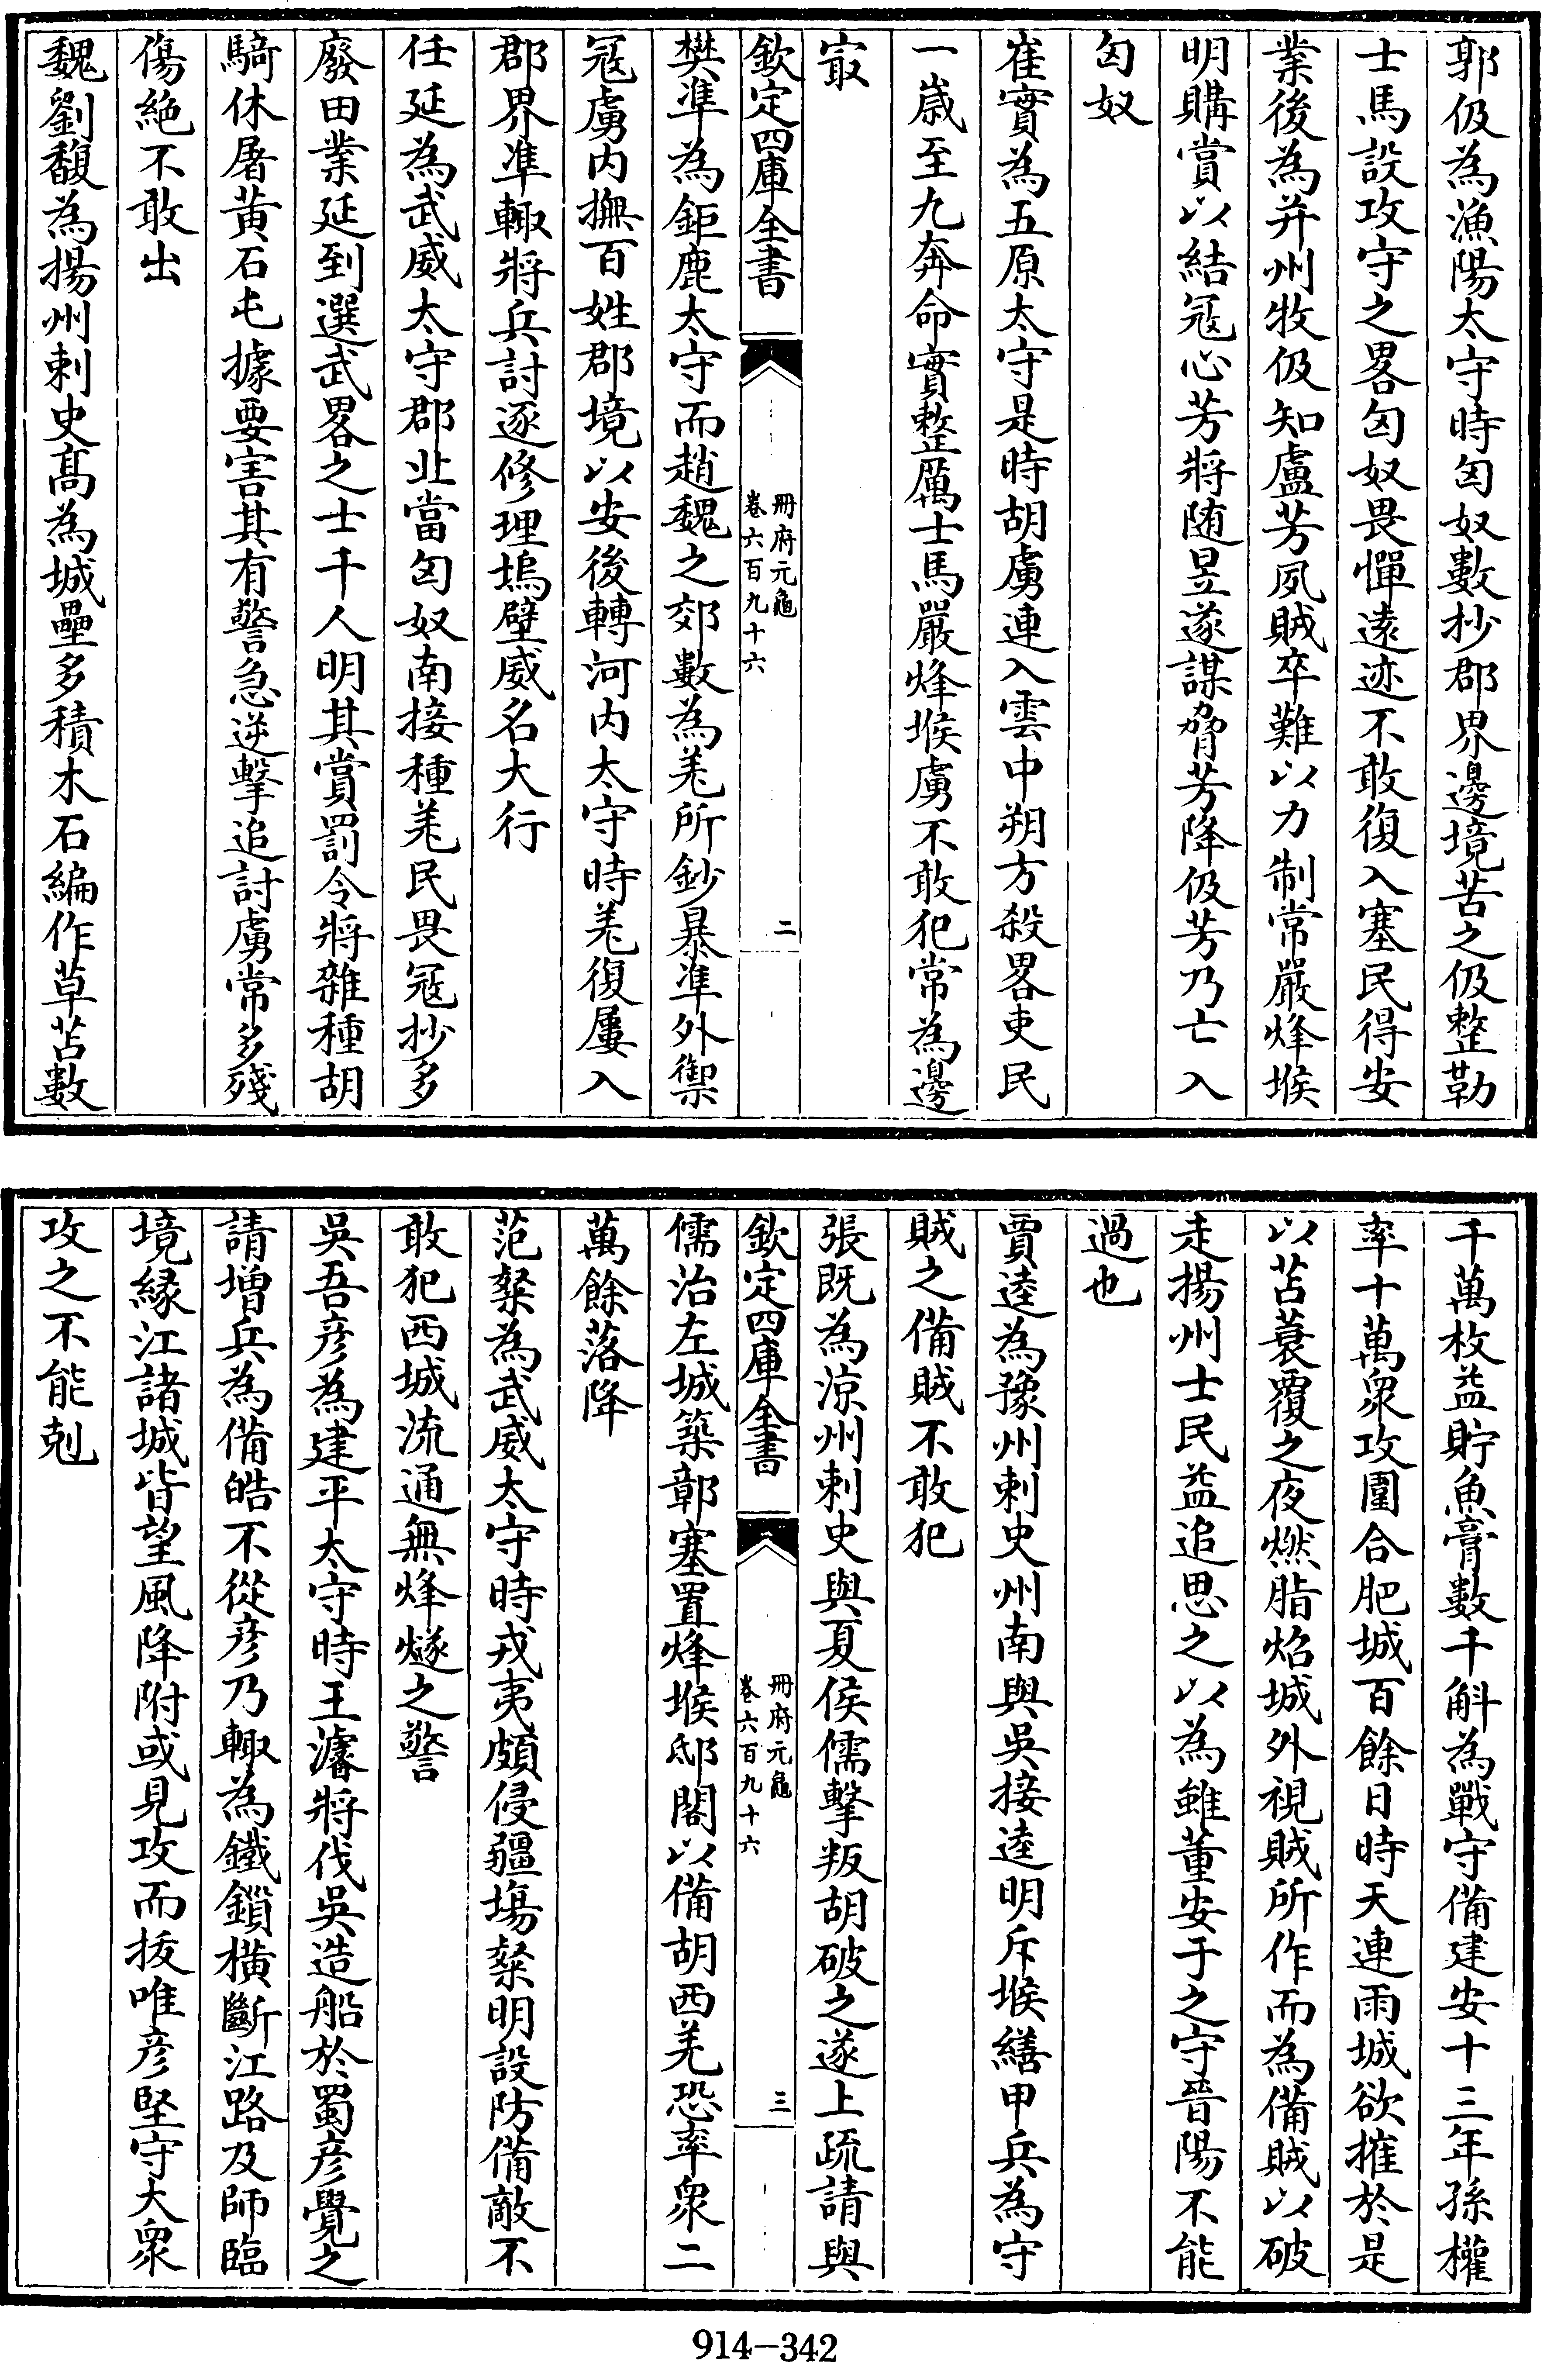 郭伋為漁陽太守時匈奴數抄郡界邊境苦之伋整勒
士馬設攻守之畧匈奴畏憚遠迹不敢復入塞民得安
業後為并州牧伋知盧芳夙賊卒難以力制常嚴烽堠
明購賞以結冦心芳將随昱遂謀脅芳降伋芳乃亡入
匈奴
崔寔為五原太守是時胡虜連入雲中朔方殺畧吏民
一歲至九奔命實整厲士馬嚴烽堠虜不敢犯常為邊
㝡
欽定四庫全書
冊府元龜
卷六百九十六
二
樊準為鉅鹿太守而趙魏之郊數為羌所鈔暴準外禦
冦虜内撫百姓郡境以安後轉河内太守時羌復屢入
郡界準輙將兵討逐修理塢壁威名大行
任延為武威太守郡北當匈奴南接種羌民畏冦抄多
廢田業延到選武畧之士千人明其賞罰令將雜種胡
騎休屠黄石屯據要害其有警急逆擊追討虜常多殘
傷絶不敢出
魏劉馥為揚州刺史髙為城壘多積木石編作草苫數
千萬枚益貯魚膏數千斛為戰守備建安十三年孫權
率十萬衆攻圍合肥城百餘日時天連雨城欲摧於是
以苫蓑覆之夜燃脂焰城外視賊所作而為備賊以破
走揚州士民益追思之以為雖董安于之守晉陽不能
過也
賈逵為豫州刺史州南與吳接逵明斥堠繕甲兵為守
賊之備賊不敢犯
張既為涼州刺史與夏侯儒擊叛胡破之遂上疏請與
欽定四庫全書
冊府元龜
卷六百九十六
三
儒治左城築鄣塞置烽堠邸閣以備胡西羌恐率衆二
萬餘落降
范粲為武威太守時戎夷頗侵疆場粲明設防備敵不
敢犯西城流通無烽燧之警
吳吾彦為建平太守時王濬將伐吳造船於蜀彦覺之
請增兵為備皓不從彦乃輙為鐵鎖橫斷江路及師臨
境縁江諸城皆望風降附或見攻而拔唯彦堅守大衆
攻之不能剋
914-342